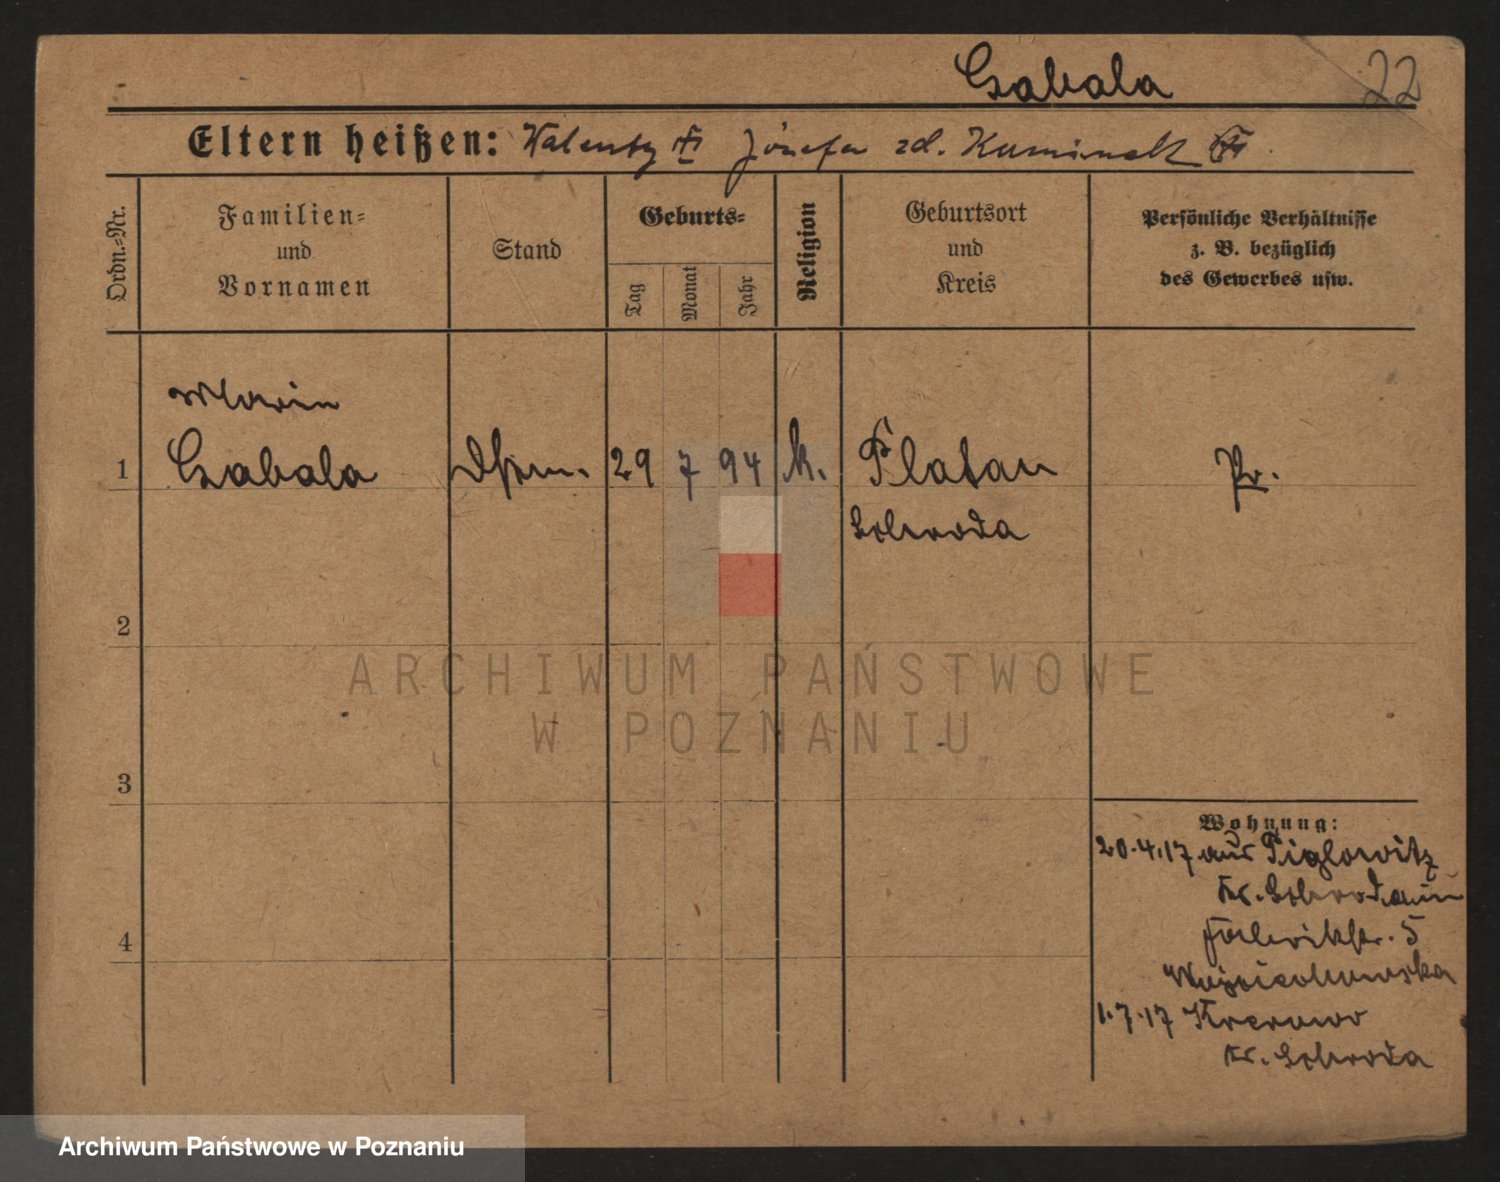 Gabala
22
Eltern heißen: Walenty Józefa zd.
Ordn.-Nr.
Familien-
und
Vornamen
Stand
Geburts-
Tag
Monat
Jahr
Religion
Geburtsort
und
Kreis
Persönliche Verhältnisse
z. B. bezüglich
des Gewerbes usw.
Marie
1 Gabala 29 7 94 k. Flatau Pr.
Schroda
2
ARCHIWUM PAŃSTWOWE
W POZNANIU
3
Wohnung:
20.4.17 aus Piglowitz
Kr. Schroda
Fabrikstr. 5
4
Wojciechowska
1.7.17 Krerowo
Kr. Schroda
Archiwum Państwowe w Poznaniu